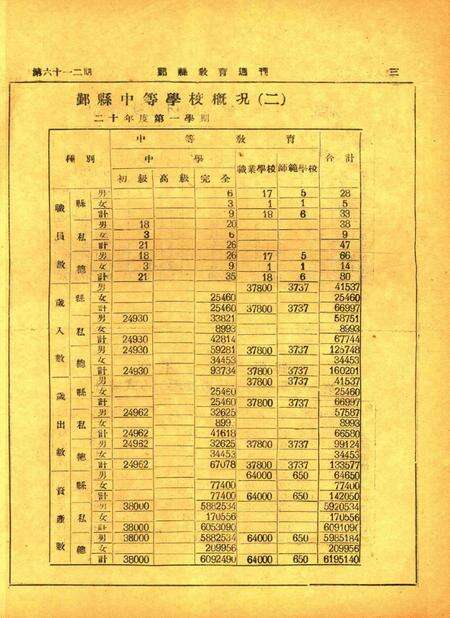 第六十一二期 鄞縣敎育週刊 三
鄞縣中等學校概况(二)
二十年度第一學期
種別 中等敎育 合計
中學 職業學校 師範學校
初級 高級 完全
職員數 縣 男 6 17 5 28
女 3 1 1 5
計 9 18 6 33
私 男 18 20 38
女 3 6 9
計 21 26 47
總 男 18 26 17 5 66
女 3 9 1 1 14
計 21 35 18 6 80
歲入數 縣 男 37800 3737 41537
女 25460 25460
計 25460 37800 3737 66997
私 男 24930 33821 58751
女 8993 8993
計 24930 42814 67744
總 男 24930 59281 37800 3737 125748
女 34453 34453
計 24930 93734 37800 3737 160201
歲出數 縣 男 37800 3737 41537
女 25460 25460
計 25460 37800 3737 66997
私 男 24962 32625 57587
女 899 8993
計 24962 41618 66580
總 男 24962 32625 37800 3737 99124
女 34453 34453
計 24962 67078 37800 3737 133577
資產數 縣 男 64000 650 64650
女 77400 77400
計 77400 64000 650 142050
私 男 38000 5882534 5920534
女 170556 170556
計 38000 6053090 6091090
總 男 38000 5882534 64000 650 5985184
女 209956 209956
計 38000 6092490 64000 650 6195140